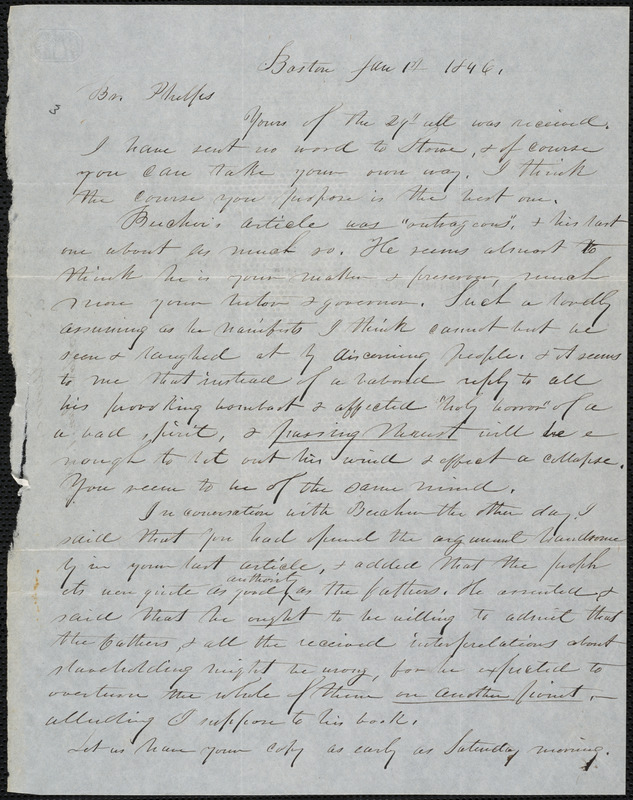 Boston Jan 1st 1846.
Br. Phelps
3
Yours of the 29th ult was received.
I have sent no word to Stowe, & of course
you can take your own way. I think
the course you propose is the best one.
Beecher's article was "outrageous", & his last
one about as much so. He seems almost to
think he is your maker & preserver, much
more your tutor & governor. Such a
assuming as he manifests I think cannot but be
seen & laughed at by discerning people. & it seems
to me that instead of a labored reply to all
his provoking bombast & affected "holy horror" of a
a bad spirit, & passing thrust will be e
nough to let out his wind & effect a collapse.
You seem to be of the same mind.
In conversation with Beecher the other day I
said that you had opened the argument handsome
ly in your last article, & added that the proph
ets were quite as good authority as the fathers. He assented, &
said that he ought to be willing to admit that
the fathers, & all the received interpretations about
slaveholding might be wrong, for he expected to
overturn the whole of them on another point, -
alluding I suppose to his book.
Let us have your copy as early as Saturday morning.